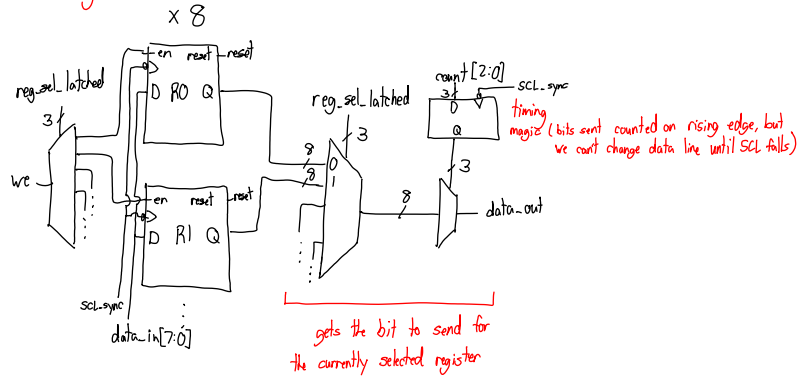 x 8
reg_sel_latched
3
we
en
reset
reset
D
R0
Q
en
reset
reset
D
R1
Q
SCL_sync
data_in[7:0]
reg_sel_latched
3
8
8
0
1
8
count[2:0]
3
SCL_sync
D
Q
timing
magic (bits sent counted on rising edge, but
we can't change data line until SCL falls)
3
data_out
gets the bit to send for
the currently selected register